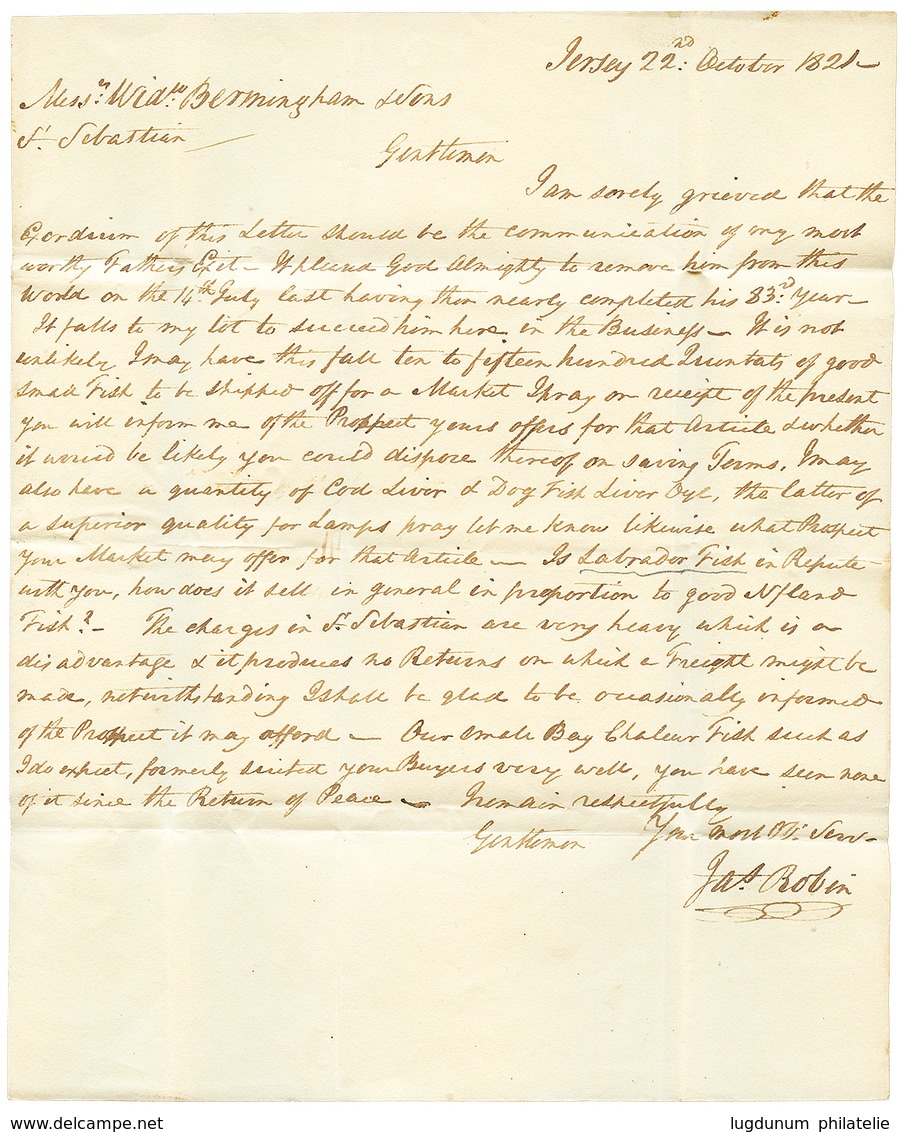 Jersey 22nd. October 1821
Messrs. Widow Bermingham & Sons
St. Sebastian
Gentlemen
I am sorely grieved that the
Exordium of this Letter should be the communication of my most
worthy Fathers Exit - It pleased God Almighty to remove him from this
World on the 14th July last having then nearly completed his 83rd. Year -
It falls to my lot to succeed him here in the Business - It is not
unlikely I may have this fall ten to fifteen hundred Quintals of good
small Fish to be shipped off for a Market I pray on receipt of the present
you will inform me of the Prospect yours offers for that Article & whether
it would be likely you could dispose thereof on saving Terms. I may
also have a quantity of Cod Liver & Dog Fish Liver Oyl, the latter of
a superior quality for Lamps pray let me know likewise what Prospect
your Market may offer for that Article - Is Labrador Fish in Repute
with you, how does it sell in general in proportion to good Nfland
Fish? - The charges in St. Sebastian are very heavy which is a
disadvantage & it produces no Returns on which a Freight might be
made, notwithstanding I shall be glad to be occasionally informed
of the Prospect it may afford - Our small Bay Chaleur Fish such as
I do expect, formerly suited your Buyers very well, you have seen none
of it since the Return of Peace - I remain respectfully
Gentlemen Your most Ob. Serv.
Jas. Robin
www.delcampe.net
lugdunum philatelie